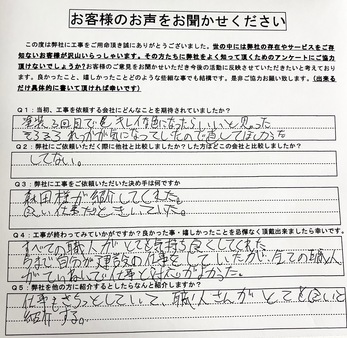 お客様のお声をお聞かせください
この度は弊社に工事をご用命頂き誠にありがとうございました。世の中には弊社の存在やサービスをご存
知ないお客様が沢山いらっしゃいます。その方たちに弊社をよく知って頂くためのアンケートにご協力
頂けないでしょうか?お客様からのご意見をお聞かせいただき今後の活動に反映させていただきたいと考えており
ます。良かったこと、嬉しかったことどのような些細な事でも結構です。是非ご協力お願い致します。(出来る
だけ具体的に書いて頂ければ幸いです)
Q1:当初、工事を依頼する会社にどんなことを期待されていましたか?
塗装2回目で色 きれいな色になったらいいと思った
ひびわれが気になってしたので直してほしかった
Q2:弊社にご依頼いただく際に他社と比較しましたか?した方はどこの会社と比較しましたか?
してない。
Q3:弊社に工事をご依頼いただいた決め手は何ですか
森田様が紹介してくれた。
良い仕事だときいていた。
Q4:工事が終わってみていかがですか?良かった事・嬉しかったことを忌憚なく頂戴出来ましたら幸いです。
すべての職人がとても気持ち良くしてくれた
今まで自分が建設の仕事をしていたが、全ての職人
がていねいで仕事と対応がよかった。
Q5:弊社を他の方に紹介するとしたらなんと紹介しますか?
仕事もきちっとしていて、職人さんがとても良いと
紹介する。